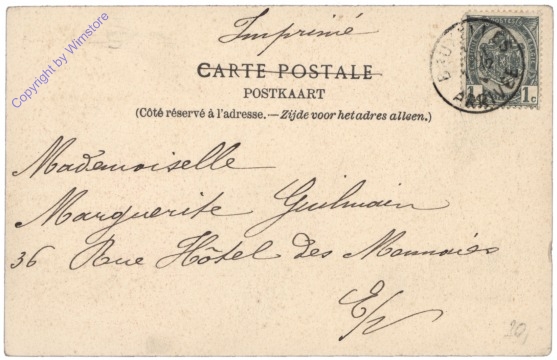 Copyright by Wimstore
Imprimé
CARTE POSTALE
POSTKAART
(Côté réservé à l'adresse.—Zijde voor het adres alleen.)
1c 1c
ARRIVEE
Mademoiselle
Marguerite Guilmain
36 Rue Hôtel des Monnaies
E/V
20,